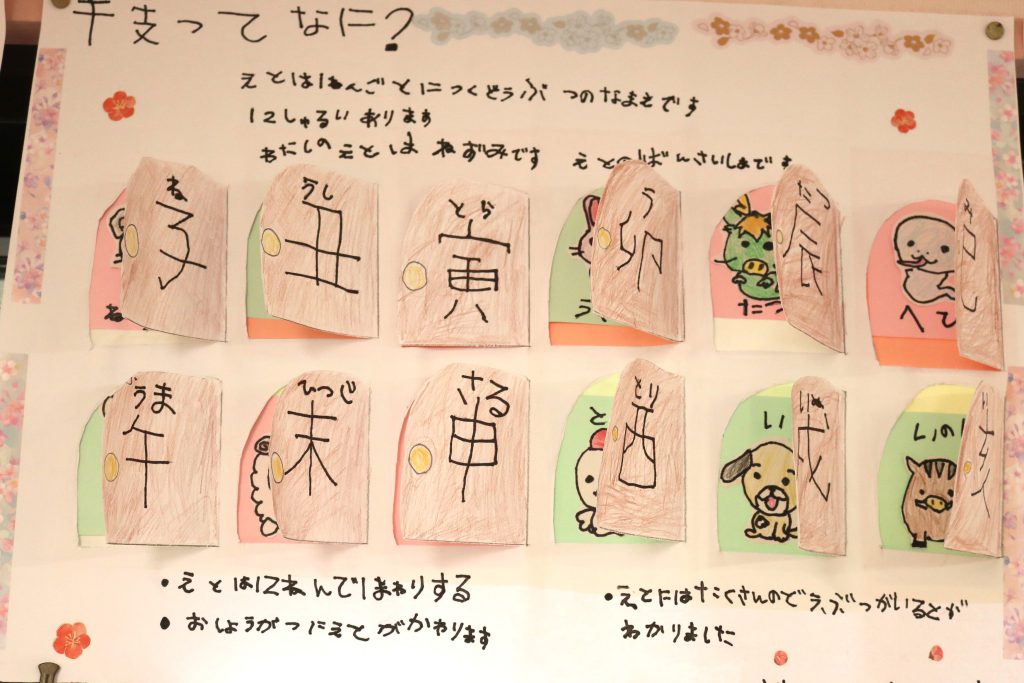 干支ってなに?
えとはねんごとにつくどうぶつのなまえです
12しゅるいあります
わたしのえとはねずみです えとのばんさいしょです
ね 子
うし 丑
とら 寅
う 卯
たつ 辰
み 巳
ね
う
たつ
へび
うま 午
ひつじ 未
さる 申
とり 酉
いぬ 戌
い 亥
と
い
いのし
・えとは12ねんで1まわりする
・おしょうがつにえとがかわります
・えとにはたくさんのどうぶつがいるとが
わかりました